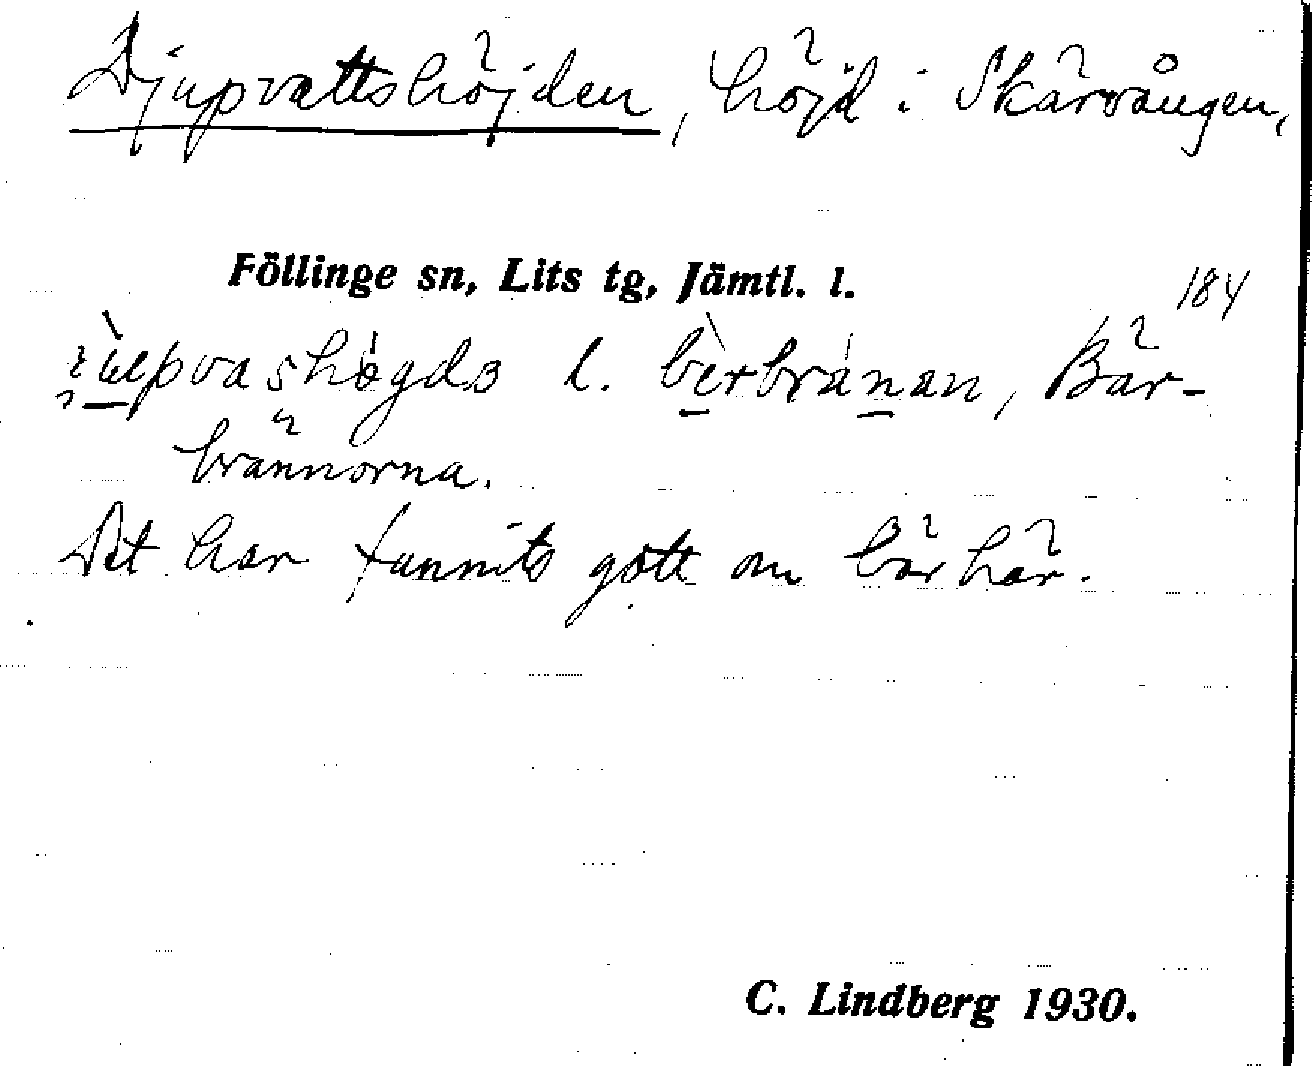 Djupvattshöjden, höjd i Skärvången,
Föllinge sn, Lits tg, Jämtl. l.
184
l. Bär-
brännorna.
Det har funnits gott om bär här.
C. Lindberg 1930.